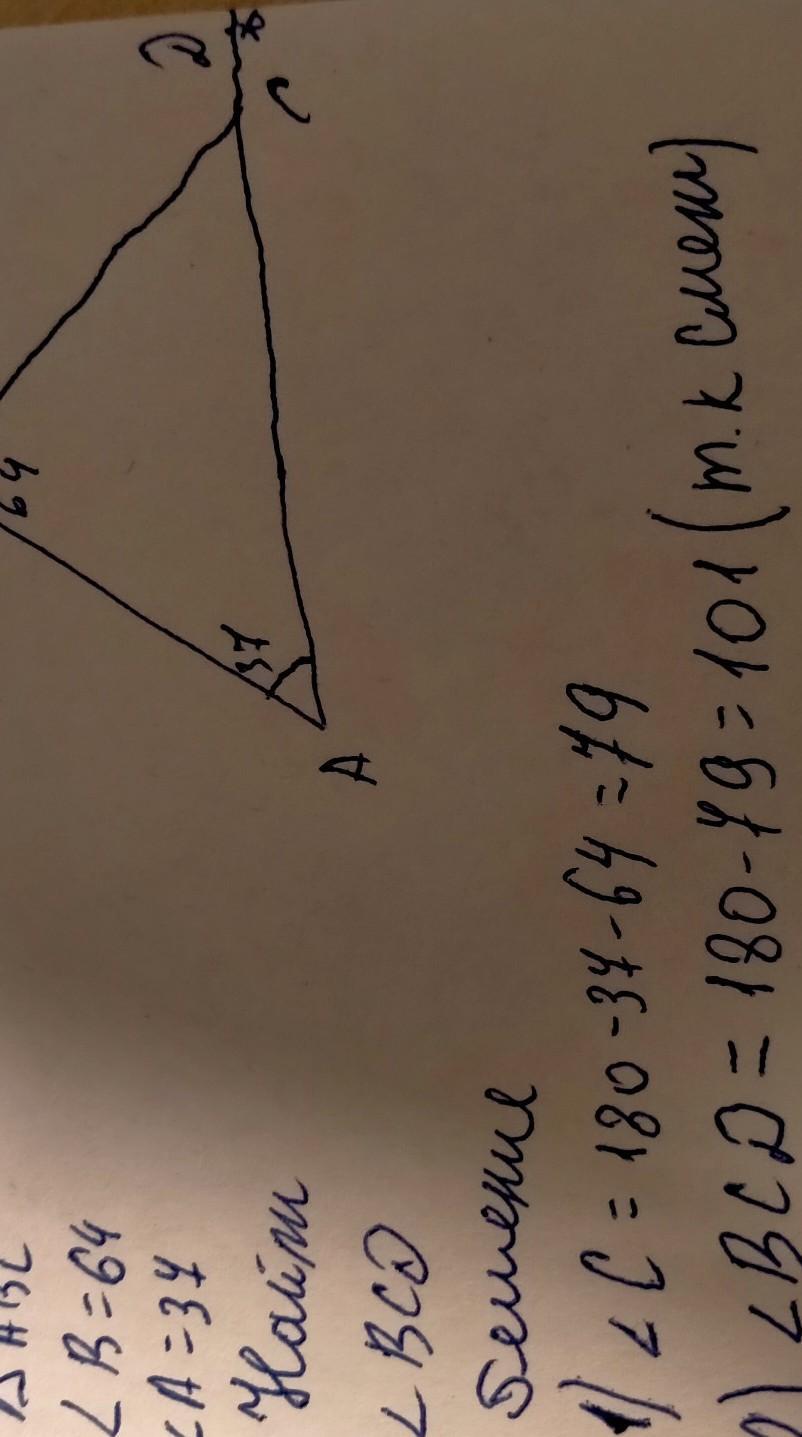 △ ABC
∠B=64
∠A=37
Найти
∠BCD
Решение
1) ∠C = 180-37-64=79
2) ∠BCD = 180-79=101 (т.к смежн)
64
37
A
C
D